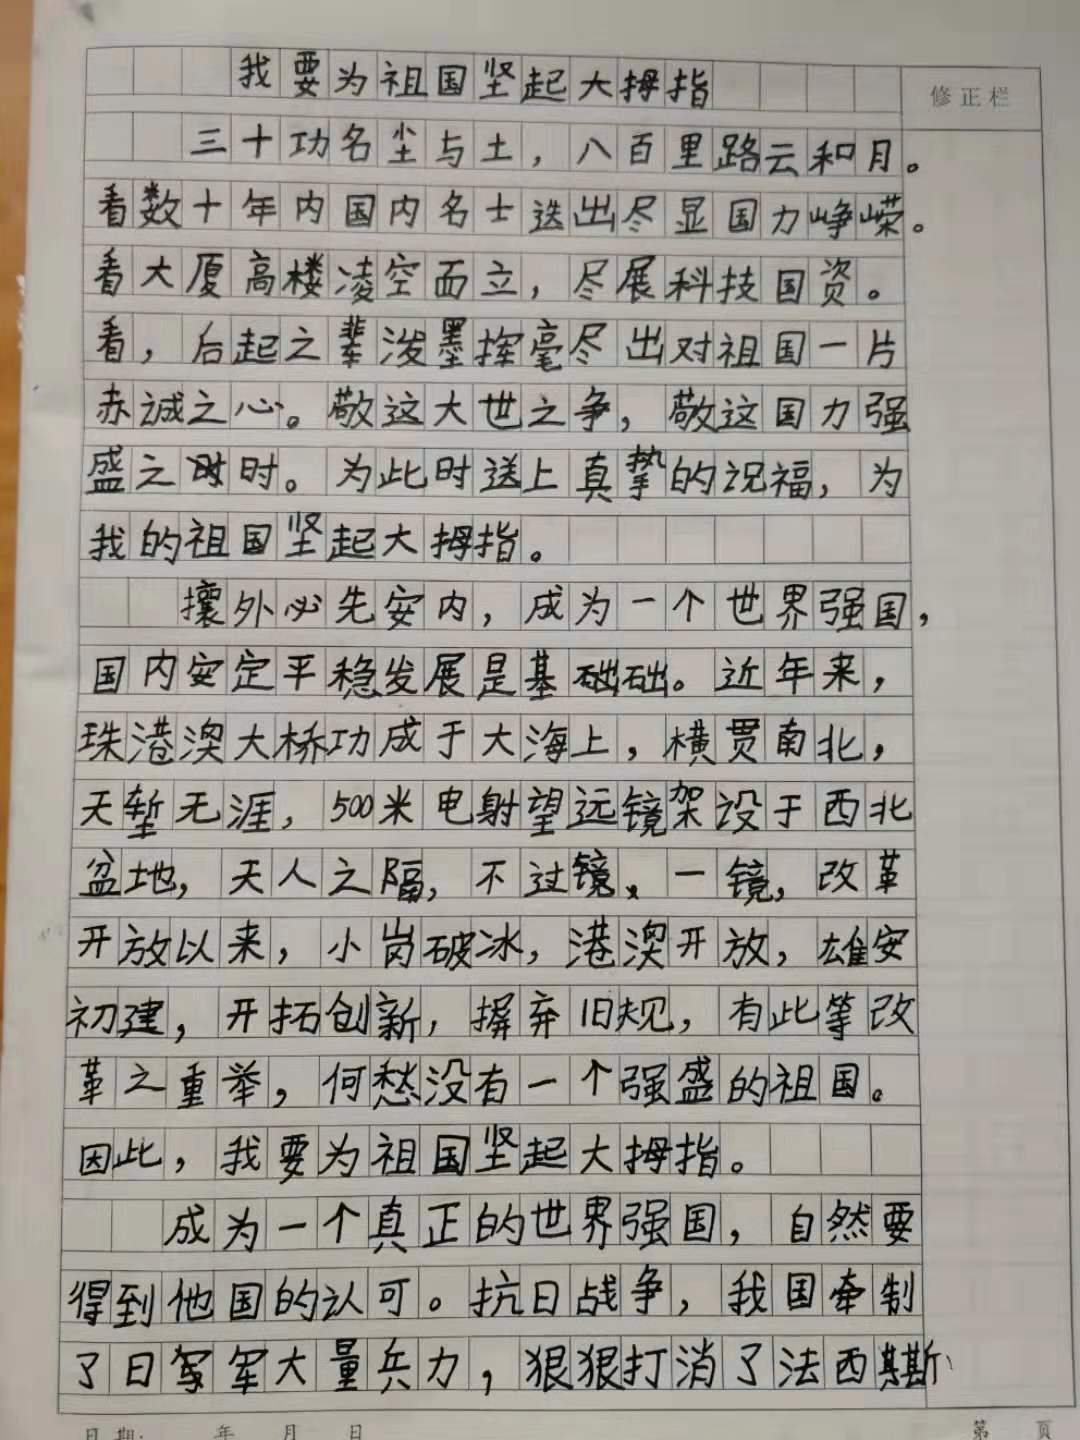 我要为祖国坚起大拇指
修正栏
三十功名尘与土，八百里路云和月。
看数十年内国内名士迭出尽显国力峥嵘。
看大厦高楼凌空而立，尽展科技国资。
看，后起之辈泼墨挥毫尽出对祖国一片
赤诚之心。敬这大世之争，敬这国力强
盛之时。为此时送上真挚的祝福，为
我的祖国坚起大拇指。
攘外必先安内，成为一个世界强国，
国内安定平稳发展是基础础。近年来，
珠港澳大桥功成于大海上，横贯南北，
天堑无涯，500米电射望远镜架设于西北
盆地，天人之隔，不过镜、一镜，改革
开放以来，小岗破冰，港澳开放，雄安
初建，开拓创新，摒弃旧规，有此等改
革之重举，何愁没有一个强盛的祖国。
因此，我要为祖国坚起大拇指。
成为一个真正的世界强国，自然要
得到他国的认可。抗日战争，我国牵制
了日军大量兵力，狠狠打消了法西斯
日期： 年 月 日 第 页